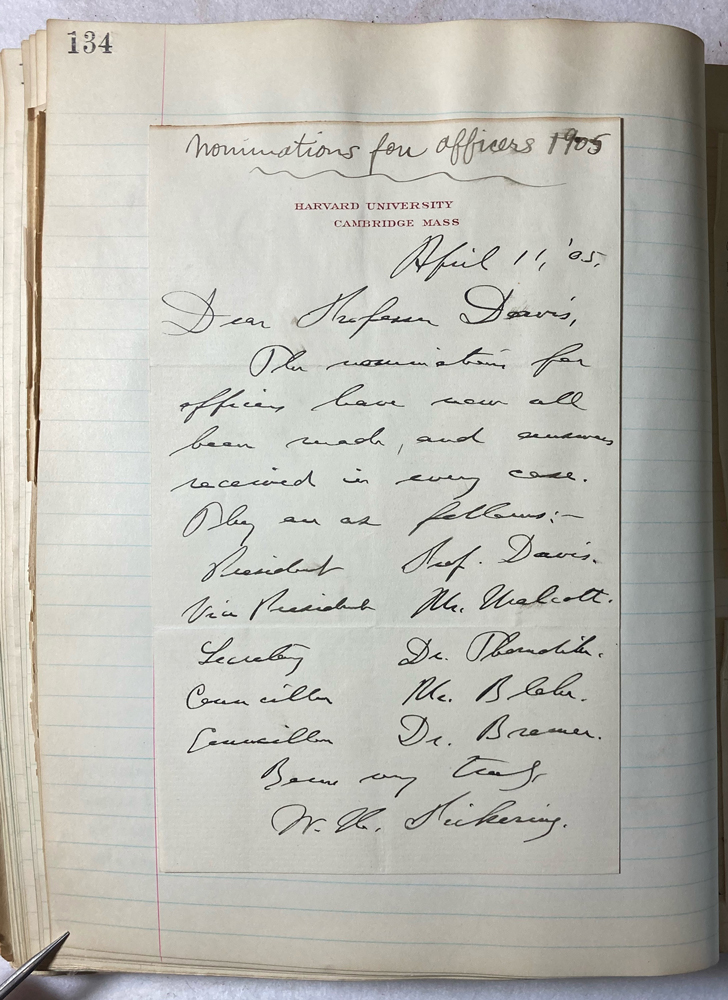 134
Nominations for officers 1905
HARVARD UNIVERSITY
CAMBRIDGE MASS
April 11, '05.
Dear Professor Davis,
The nominations for
officers have now all
been made, and answers
received in every case.
They are as follows:-
President Prof. Davis.
Vice President Mr. Walcott.
Secretary Dr. Thorndike.
Councillor Mr.
Councillor Dr. Bremer.
Yours very truly,
W. H. Pickering.